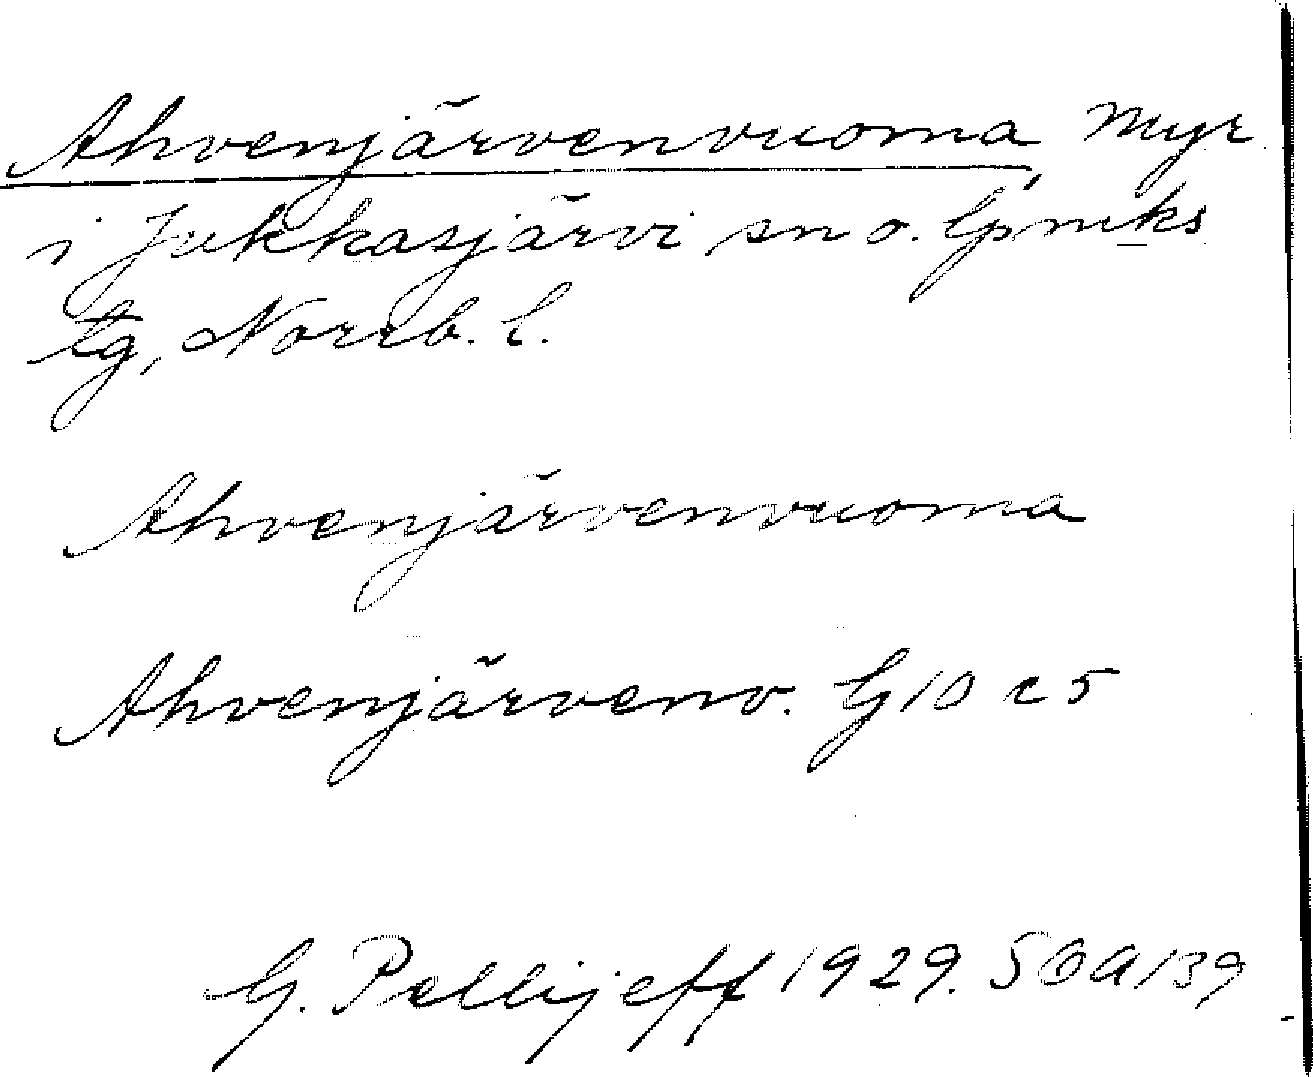 Ahvenjärvenvuoma, Myr
i Jukkasjärvi sn o. lpmks
tg, Norrb. l.
Ahvenjärvenvuoma
Ahvenjärvenv. G10 c5
G. Pellijeff 1929. SOA139